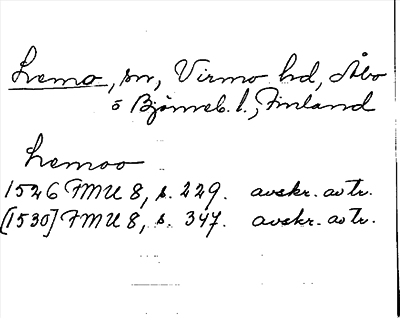 Lemo, sn, Virmo hd, Åbo
o Björneb. l., Finland
Lemoo
1526 FMU 8, s. 229. avskr. av tr.
[1530] FMU 8, s. 347. avskr. av tr.